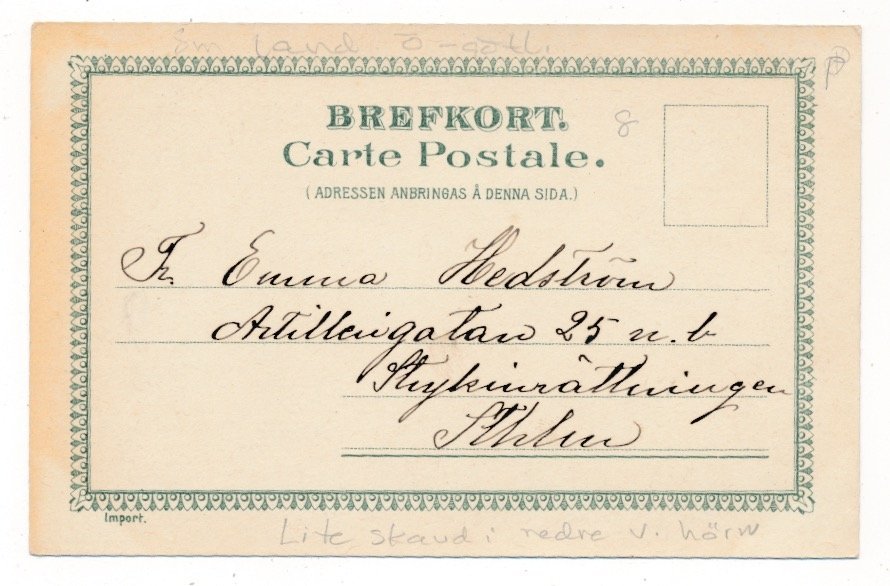 Småland. Ö-götl.
BREFKORT.
8
Carte Postale.
(ADRESSEN ANBRINGAS Å DENNA SIDA.)
Fr. Emma Hedström
Artillerigatan 25 n. b
Strykinrättningen
Sthlm
Import.
Lite skavd i nedre v. hörn